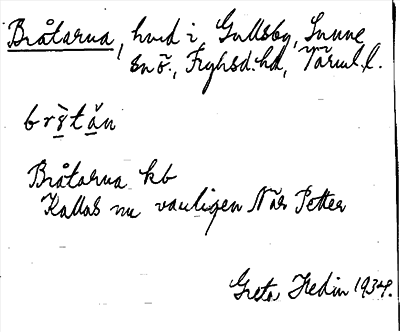 Bråtarna, hvid i Gullsby, Sunne
sn ö., Fryksd. hd, Värml. l.
brø̀tăn
Bråtarna kb
Kallas nu vanligen När Petter
Greta Hedin 1934.